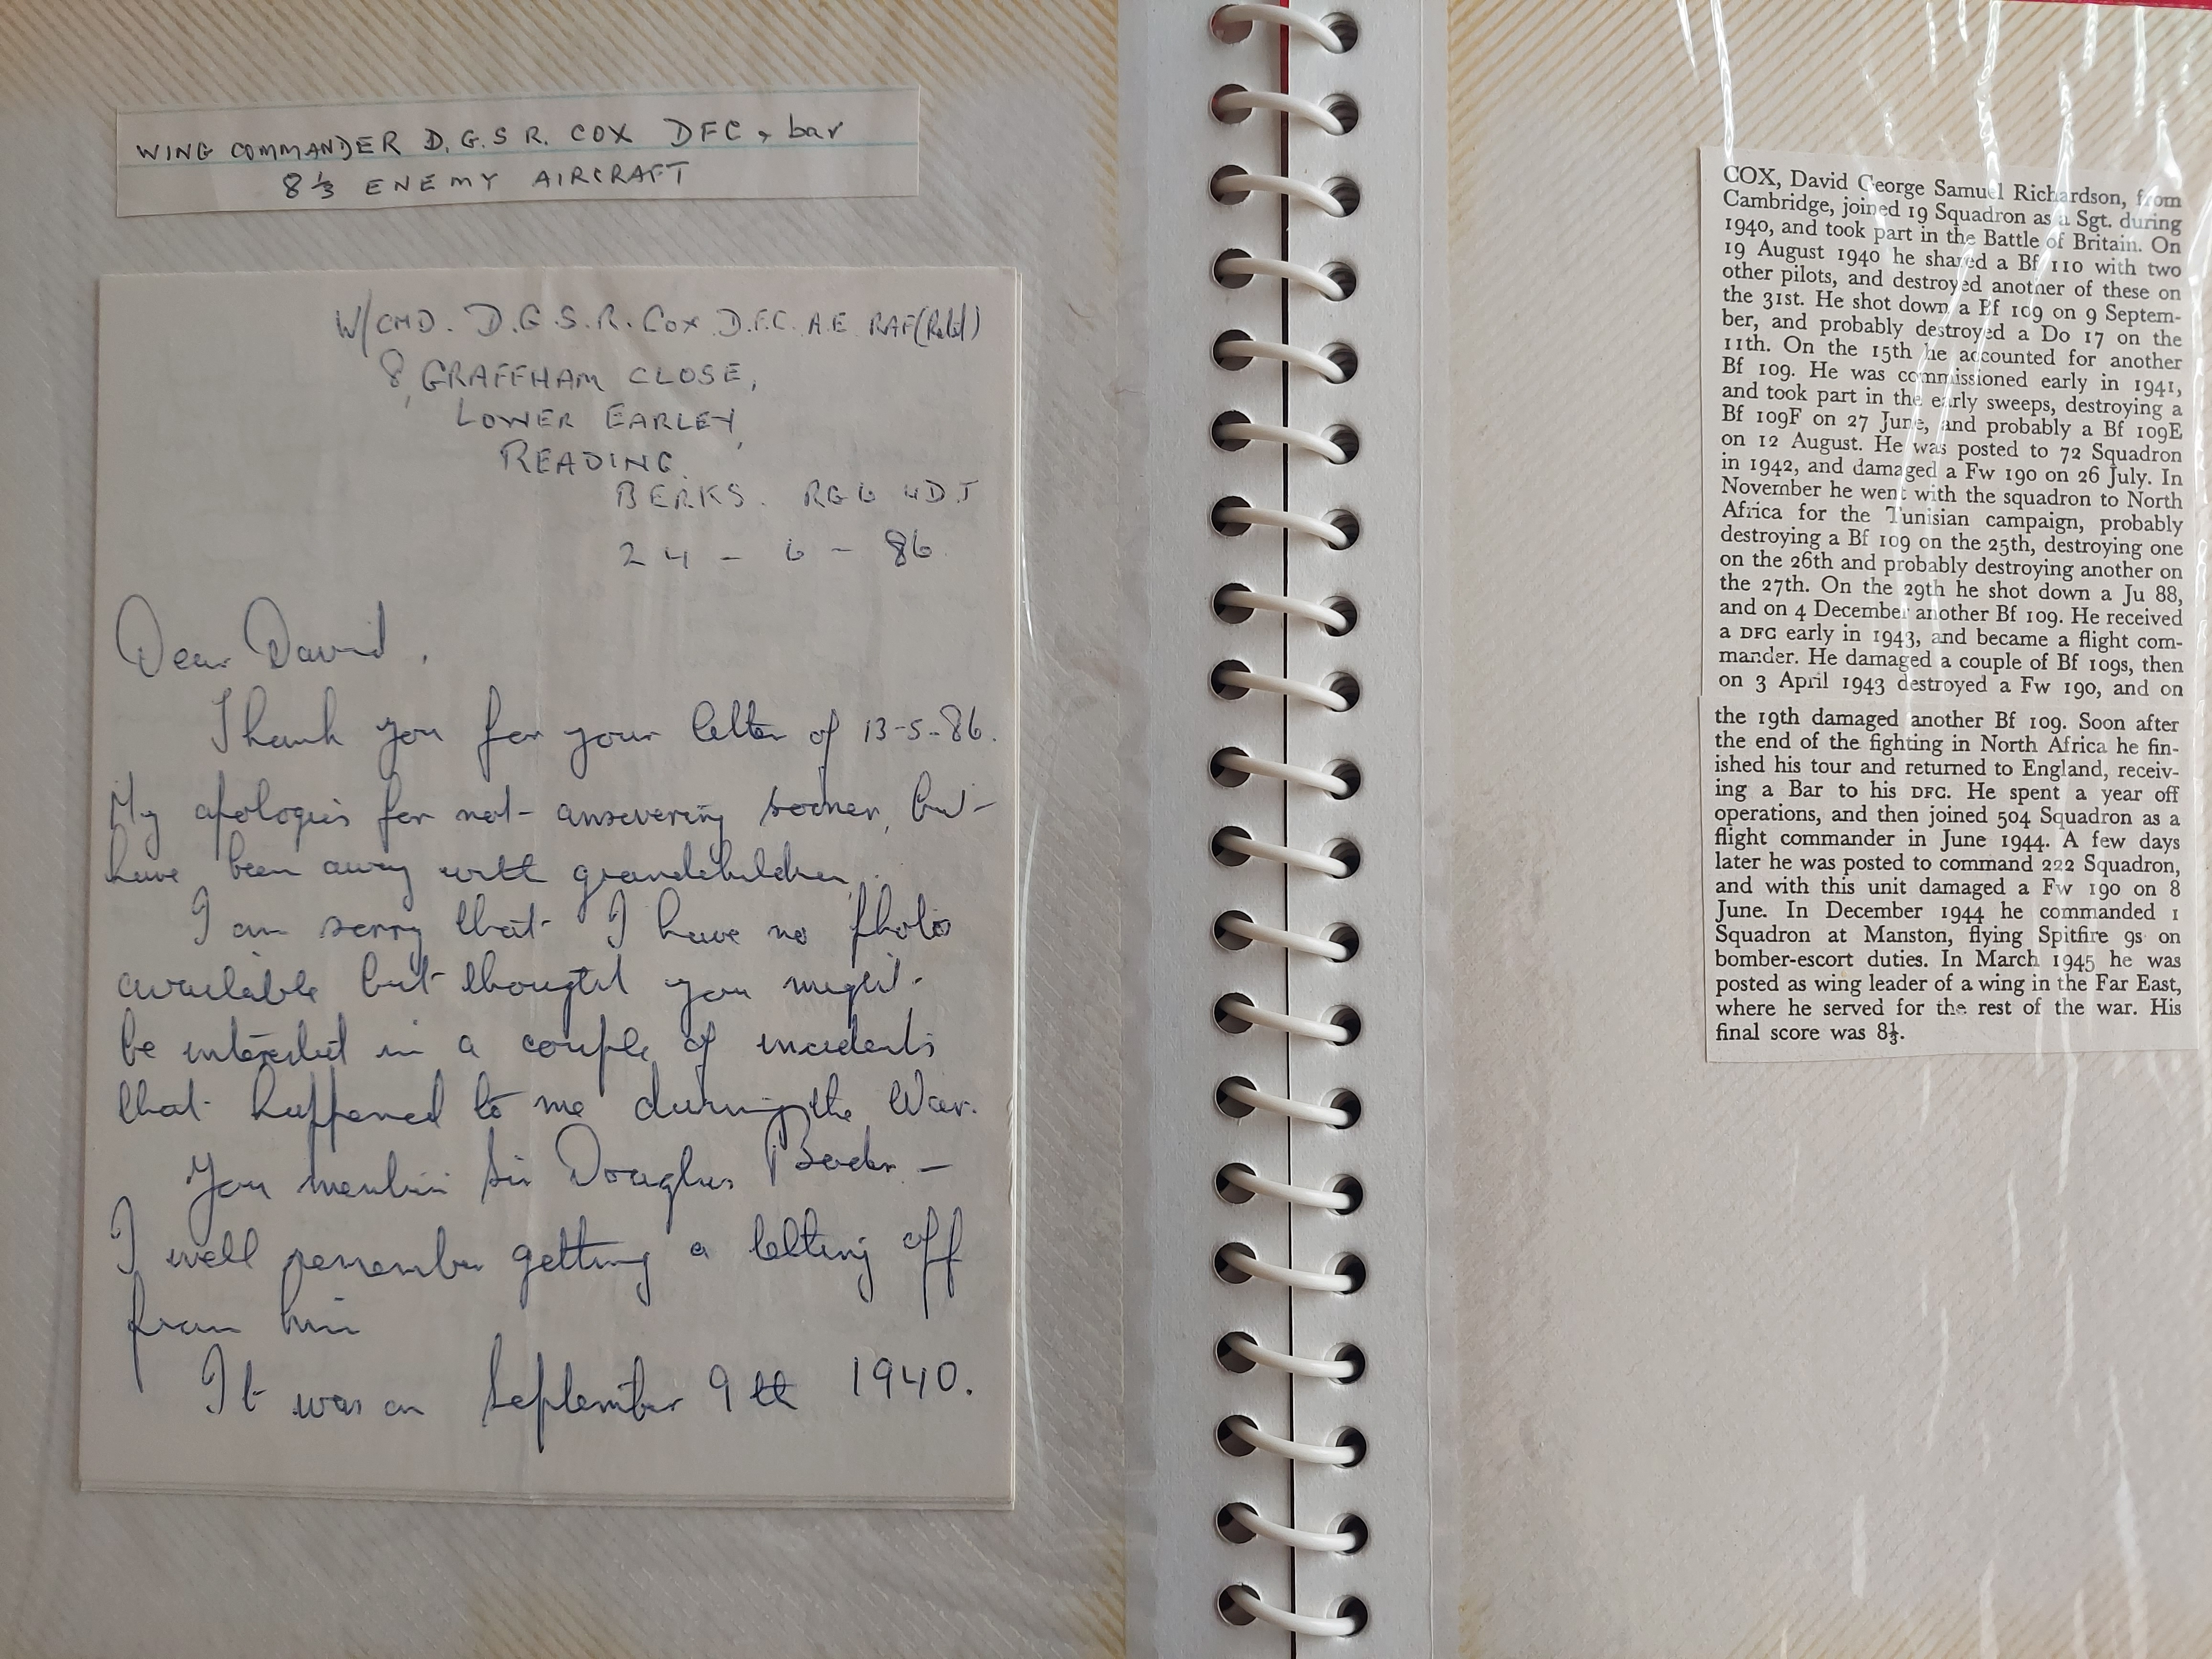 WING COMMANDER D.G.S R. COX DFC + bar
8⅓ ENEMY AIRCRAFT
W/CMD. D.G.S.R. COX D.F.C. A.E. RAF(Retd)
8, GRAFFHAM CLOSE,
LOWER EARLEY,
READING.
BERKS. RG6 4DJ
24 - 6 - 86.
Dear David,
Thank you for your letter of 13-5-86.
My apologies for not answering sooner, but
have been away with grandchildren.
I am sorry that I have no photo
available but thought you might
be interested in a couple of incidents
that happened to me during the War.
You mention Sir Douglas Bader —
I well remember getting a letting off
from him
It was on September 9th 1940.
COX, David George Samuel Richardson, from
Cambridge, joined 19 Squadron as a Sgt. during
1940, and took part in the Battle of Britain. On
19 August 1940 he shared a Bf 110 with two
other pilots, and destroyed another of these on
the 31st. He shot down a Bf 109 on 9 Septem-
ber, and probably destroyed a Do 17 on the
11th. On the 15th he accounted for another
Bf 109. He was commissioned early in 1941,
and took part in the early sweeps, destroying a
Bf 109F on 27 June, and probably a Bf 109E
on 12 August. He was posted to 72 Squadron
in 1942, and damaged a Fw 190 on 26 July. In
November he went with the squadron to North
Africa for the Tunisian campaign, probably
destroying a Bf 109 on the 25th, destroying one
on the 26th and probably destroying another on
the 27th. On the 29th he shot down a Ju 88,
and on 4 December another Bf 109. He received
a DFC early in 1943, and became a flight com-
mander. He damaged a couple of Bf 109s, then
on 3 April 1943 destroyed a Fw 190, and on
the 19th damaged another Bf 109. Soon after
the end of the fighting in North Africa he fin-
ished his tour and returned to England, receiv-
ing a Bar to his DFC. He spent a year off
operations, and then joined 504 Squadron as a
flight commander in June 1944. A few days
later he was posted to command 222 Squadron,
and with this unit damaged a Fw 190 on 8
June. In December 1944 he commanded 1
Squadron at Manston, flying Spitfire 9s on
bomber-escort duties. In March 1945 he was
posted as wing leader of a wing in the Far East,
where he served for the rest of the war. His
final score was 8⅓.